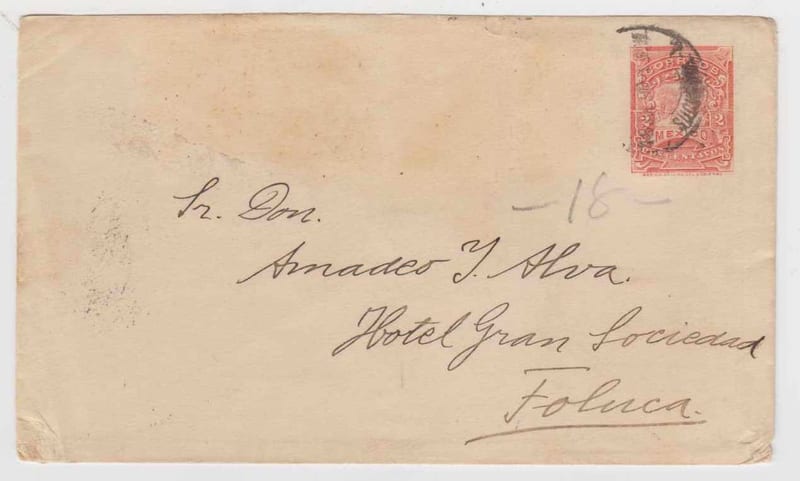 CORREOS
2 2
MEXICO
CENTAVOS
- 18 -
Sr. Don.
Amadeo Y. Alva.
Hotel Gran Sociedad
Toluca.